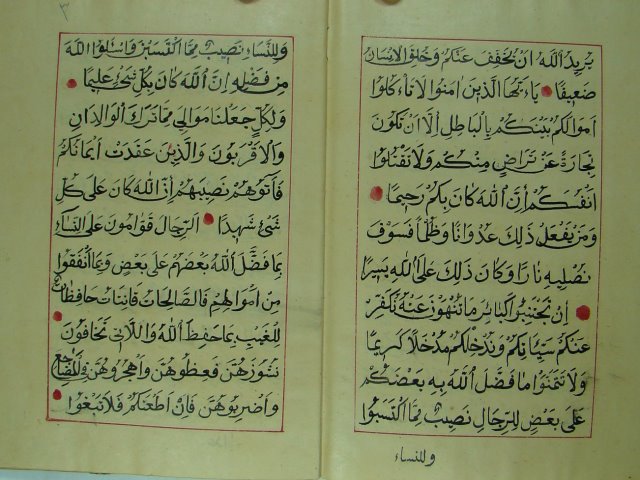 يريد الله ان يخفف عنكم وخلق الانسان
ضعيفا ياءيها الذين امنوا لا تاءكلوا
اموالكم بينكم بالباطل الا ان تكون
تجارة عن تراض منكم ولا تقتلوا
انفسكم ان الله كان بكم رحيما
ومن يفعل ذلك عدوانا وظلما فسوف
نصليه نارا وكان ذلك على الله يسيرا
ان تجتنبوا كبائر ما تنهون عنه نكفر
عنكم سيئاتكم وندخلكم مدخلا كريما
ولا تتمنوا ما فضل الله به بعضكم
على بعض للرجال نصيب مما اكتسبوا
وللنساء
٣
وللنساء نصيب مما اكتسبن واسئلوا الله
من فضله ان الله كان بكل شئ عليما
ولكل جعلنا موالي مما ترك الوالدان
والاقربون والذين عقدت ايمانكم
فاتوهم نصيبهم ان الله كان على كل
شئ شهيدا الرجال قوامون على النساء
بما فضل الله بعضهم على بعض وبما انفقوا
من اموالهم فالصالحات قانتات حافظات
للغيب بما حفظ الله واللاتي تخافون
نشوزهن فعظوهن واهجروهن في المضاجع
واضربوهن فان اطعنكم فلا تبغوا